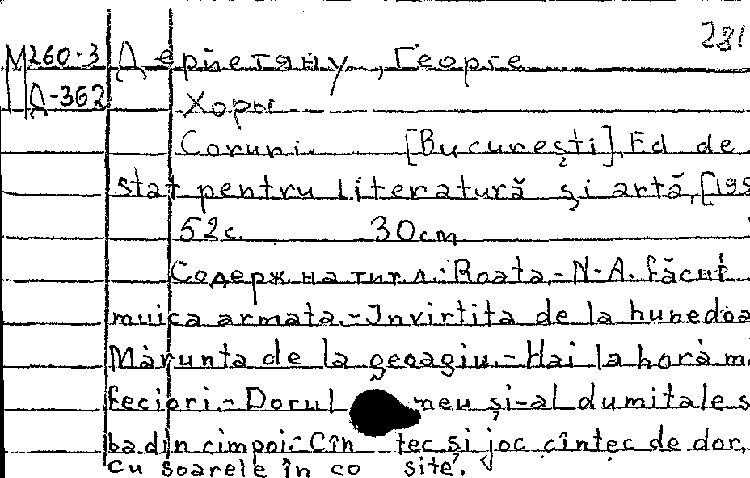 281
М260-3 Дериетяну, Георге
Д-362 Хоры
Coruri. [București], Ed de
stat pentru literatură și artă, [195
52с. 30см
Содерж на тит л.: Roata.- N-A. făcut
muica armata.- Invirtita de la hunedoa
Mărunta de la geoagiu.- Hai la horă m
feciori.- Dorul meu și-al dumitale s
ba din cimpoi.- Cîntec și joc, cîntec de dor,
cu soarele în co site.